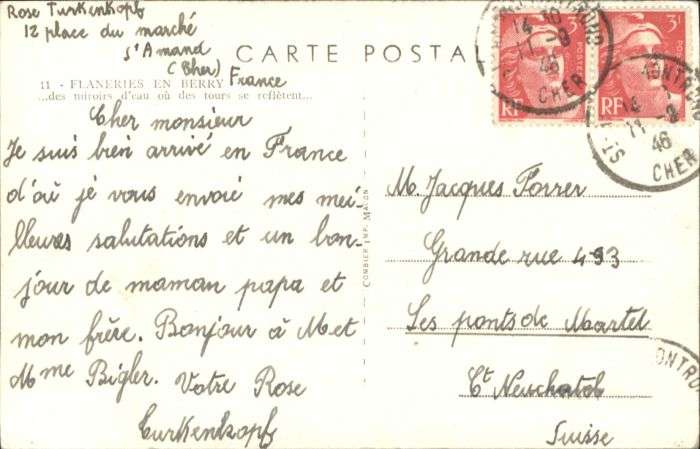 Rose Turkenkopf
12 place du marché
S'Amand
(Cher) France
CARTE POSTALE
11 - FLANERIES EN BERRY
...des miroirs d'eau où des tours se reflètent...
Cher monsieur
Je suis bien arrivé en France
d'où je vous envoie mes mei-
lleures salutations et un bon-
jour de maman papa et
mon frère. Bonjour à M et
Mme Bigler. Votre Rose
Turkenkopf
COMBIER IMP. MACON
3F
POSTES
RF
3F
RF
14 30
11 - 9
46
CHER
MONTROND
11 - 9
46
CHER
ONTRO
M. Jacques Forrer
Grande rue 493
Les ponts de Martel
Ct Neuchatel
Suisse